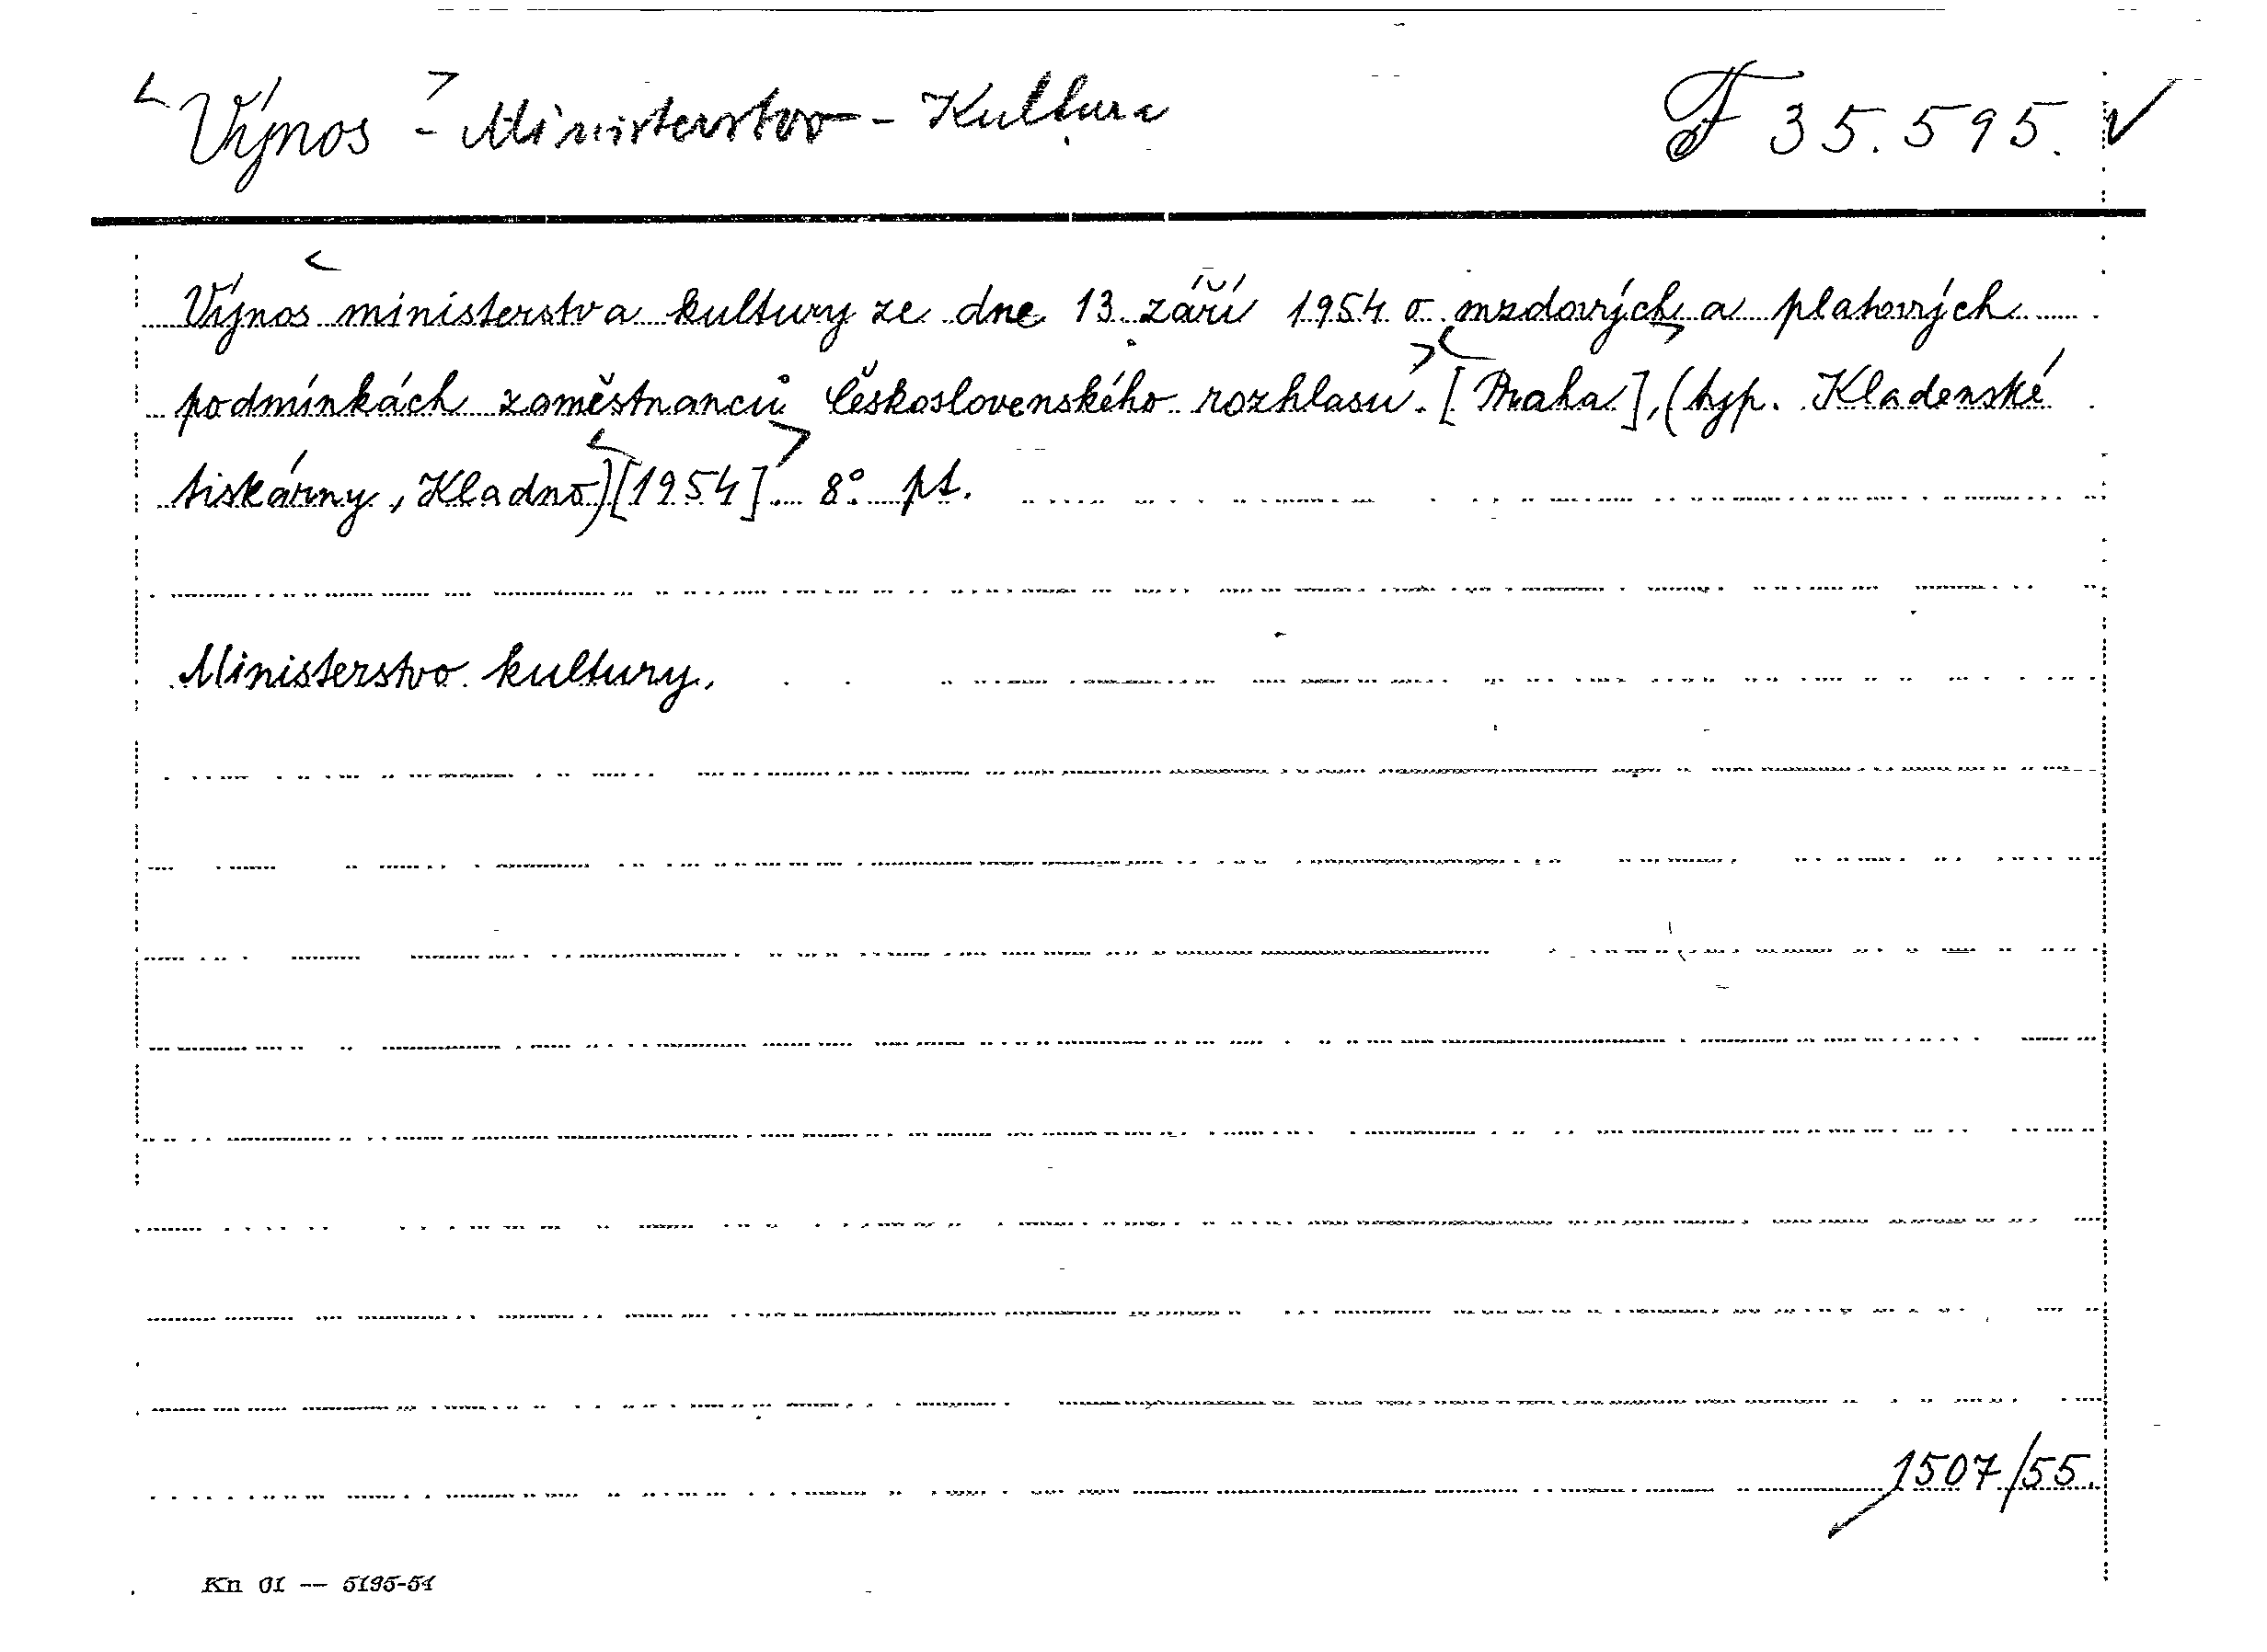 Výnos - Ministerstvo - Kultura F 35.595.
Výnos ministerstva kultury ze dne 13. září 1954 o mzdových a platových
podmínkách zaměstnanců Československého rozhlasu. [Praha], (typ. Kladenské
tiskárny, Kladno) [1954]. 8° pt.
Ministerstvo kultury.
1507/55.
Kn 01 — 5195-54